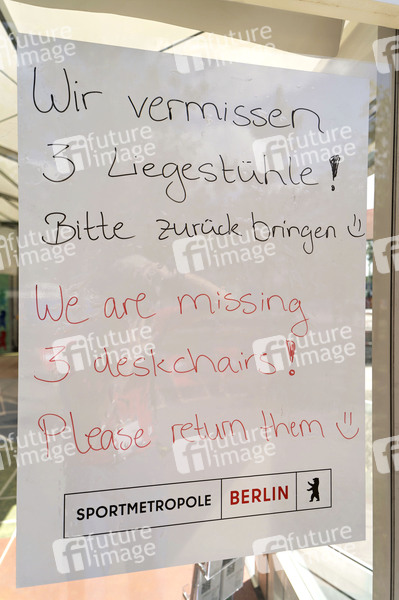 Wir vermissen
3 Liegestühle!
Bitte zurück bringen :)
We are missing
3 deskchairs!
Please return them :)
SPORTMETROPOLE BERLIN
future image